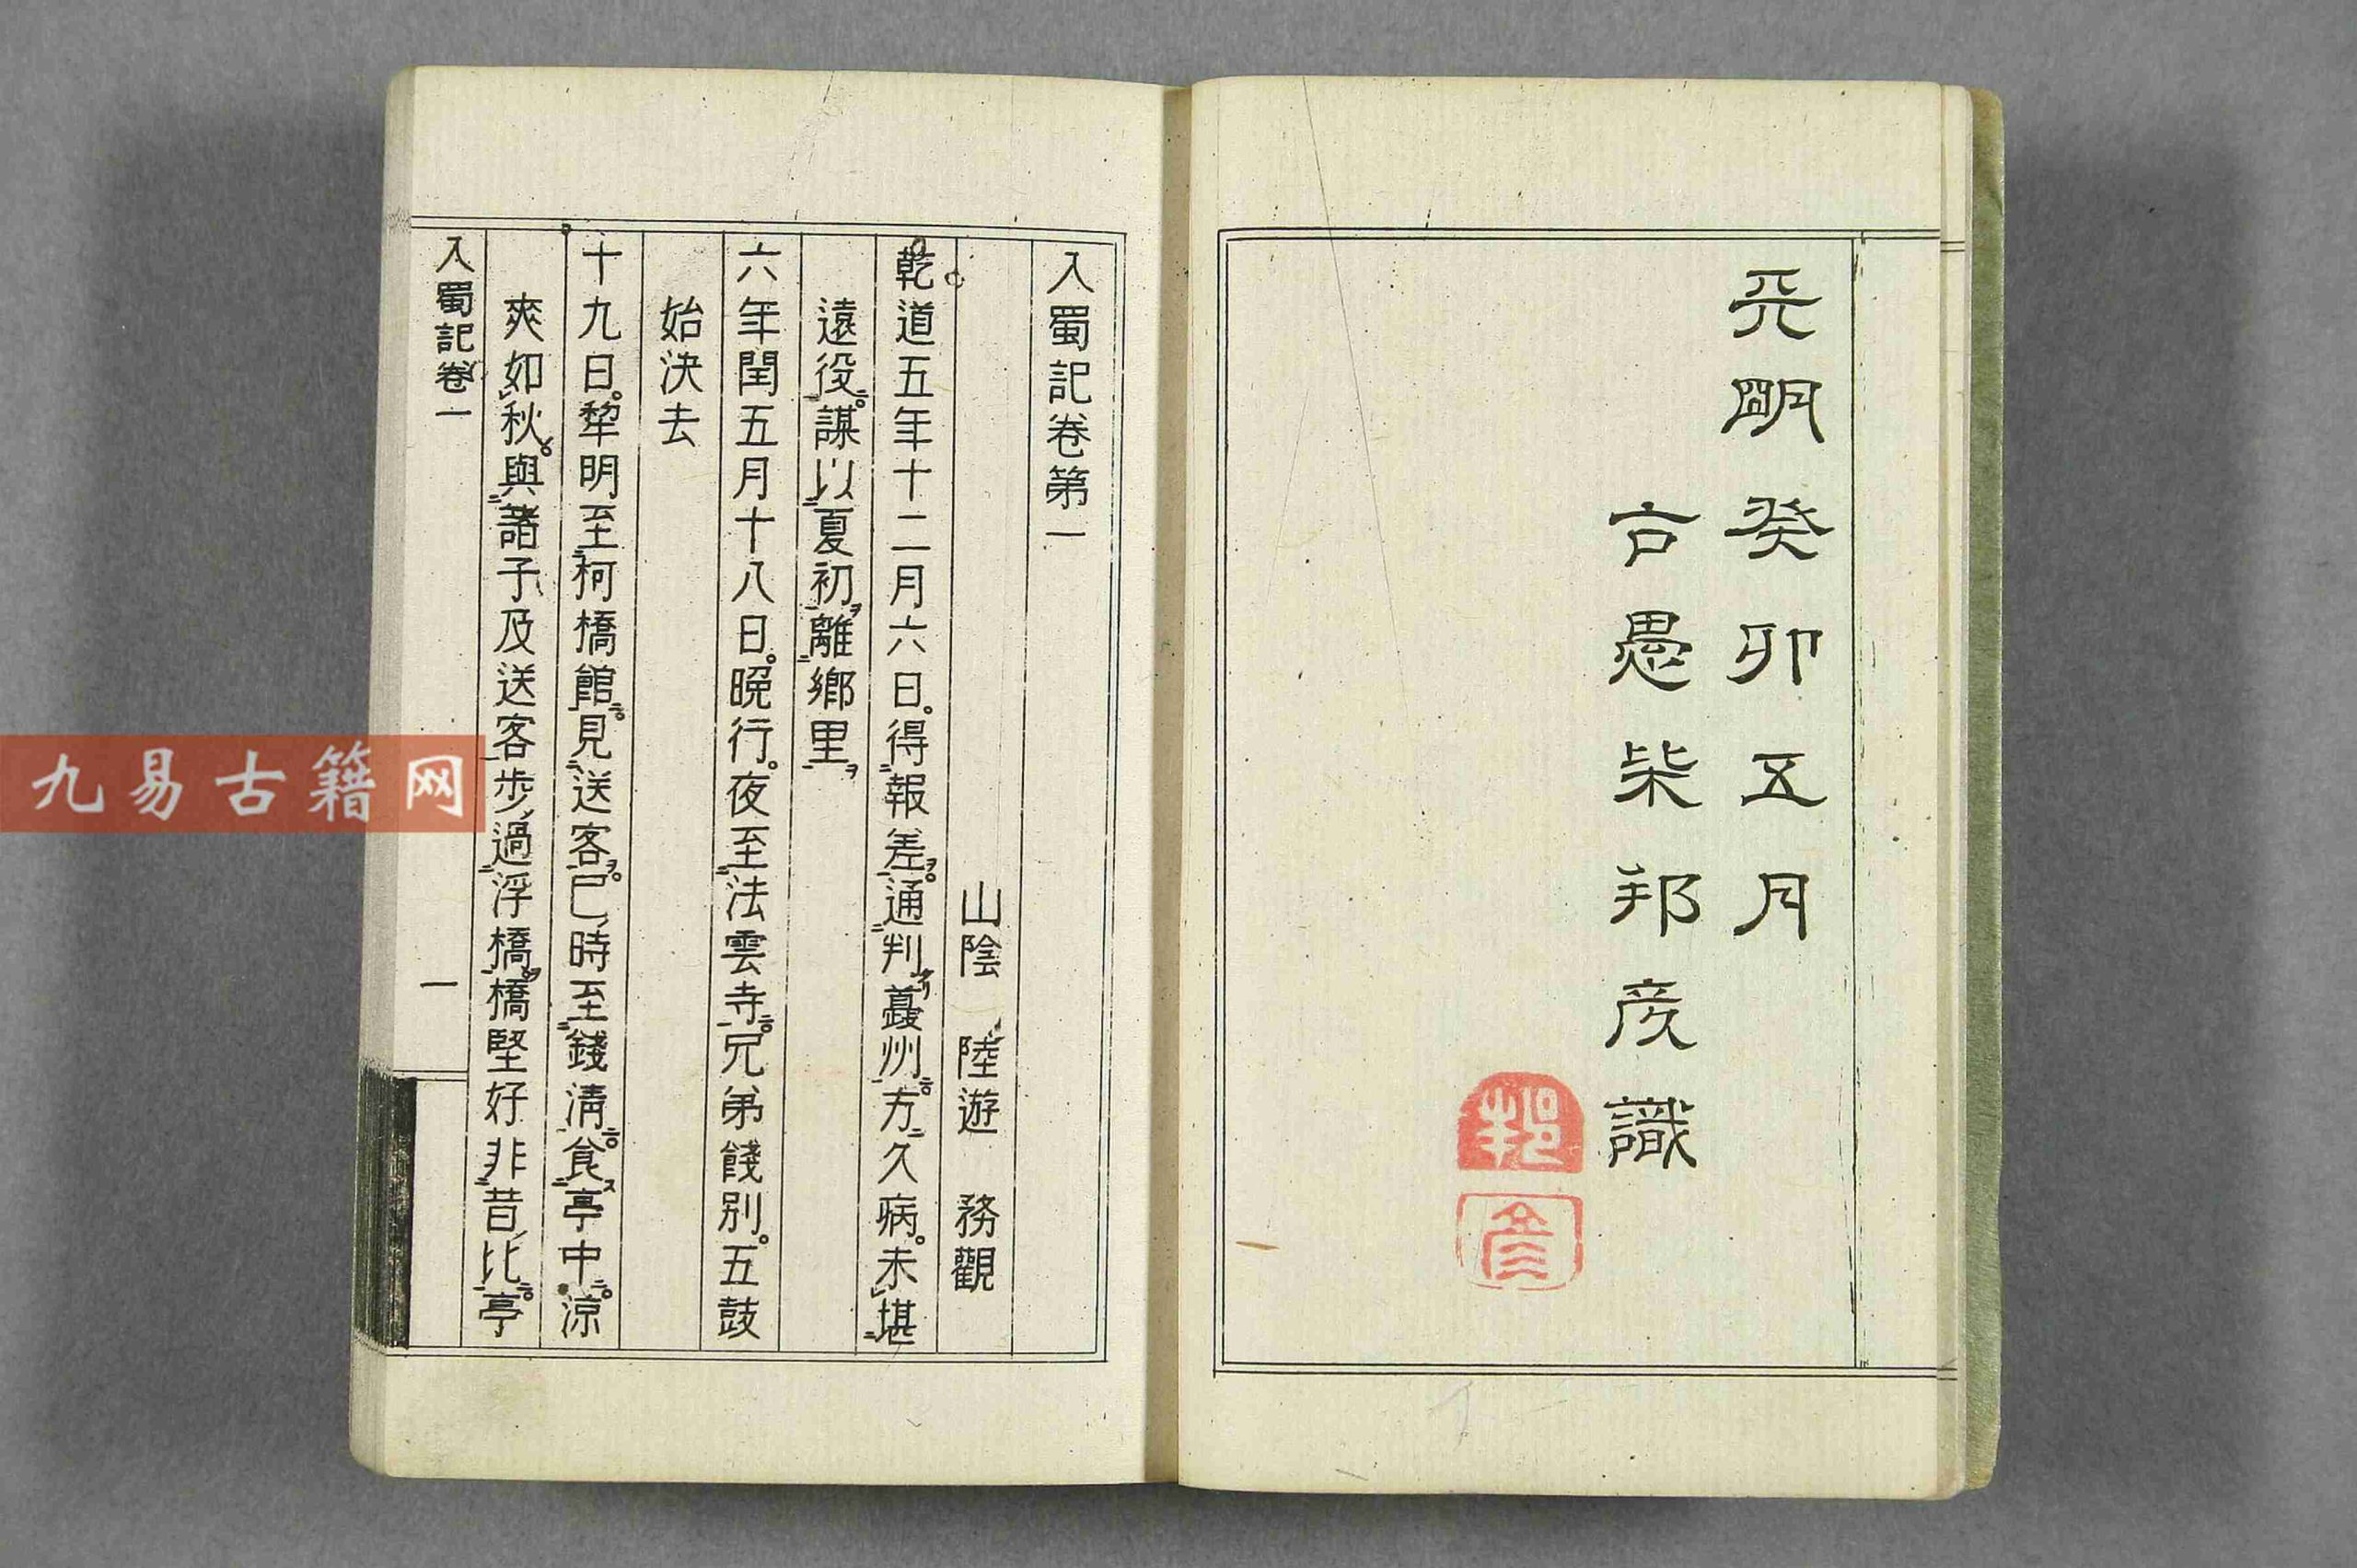 天明癸卯五月
古愚柴邦彦識
邦
彦
入蜀記卷第一
山陰 陸遊 務觀
乾道五年十二月六日。得報差。通判夔州。方久病。未堪
遠役。謀以夏初離鄉里
六年閏五月十八日。晚行。夜至法雲寺。兄弟餞別。五鼓
始決去
十九日。犂明至柯橋館。見送客。巳時至錢清。食亭中。涼
爽如秋。與諸子及送客步過浮橋。橋堅好非昔比。亭
入蜀記卷一
一
九易古籍网